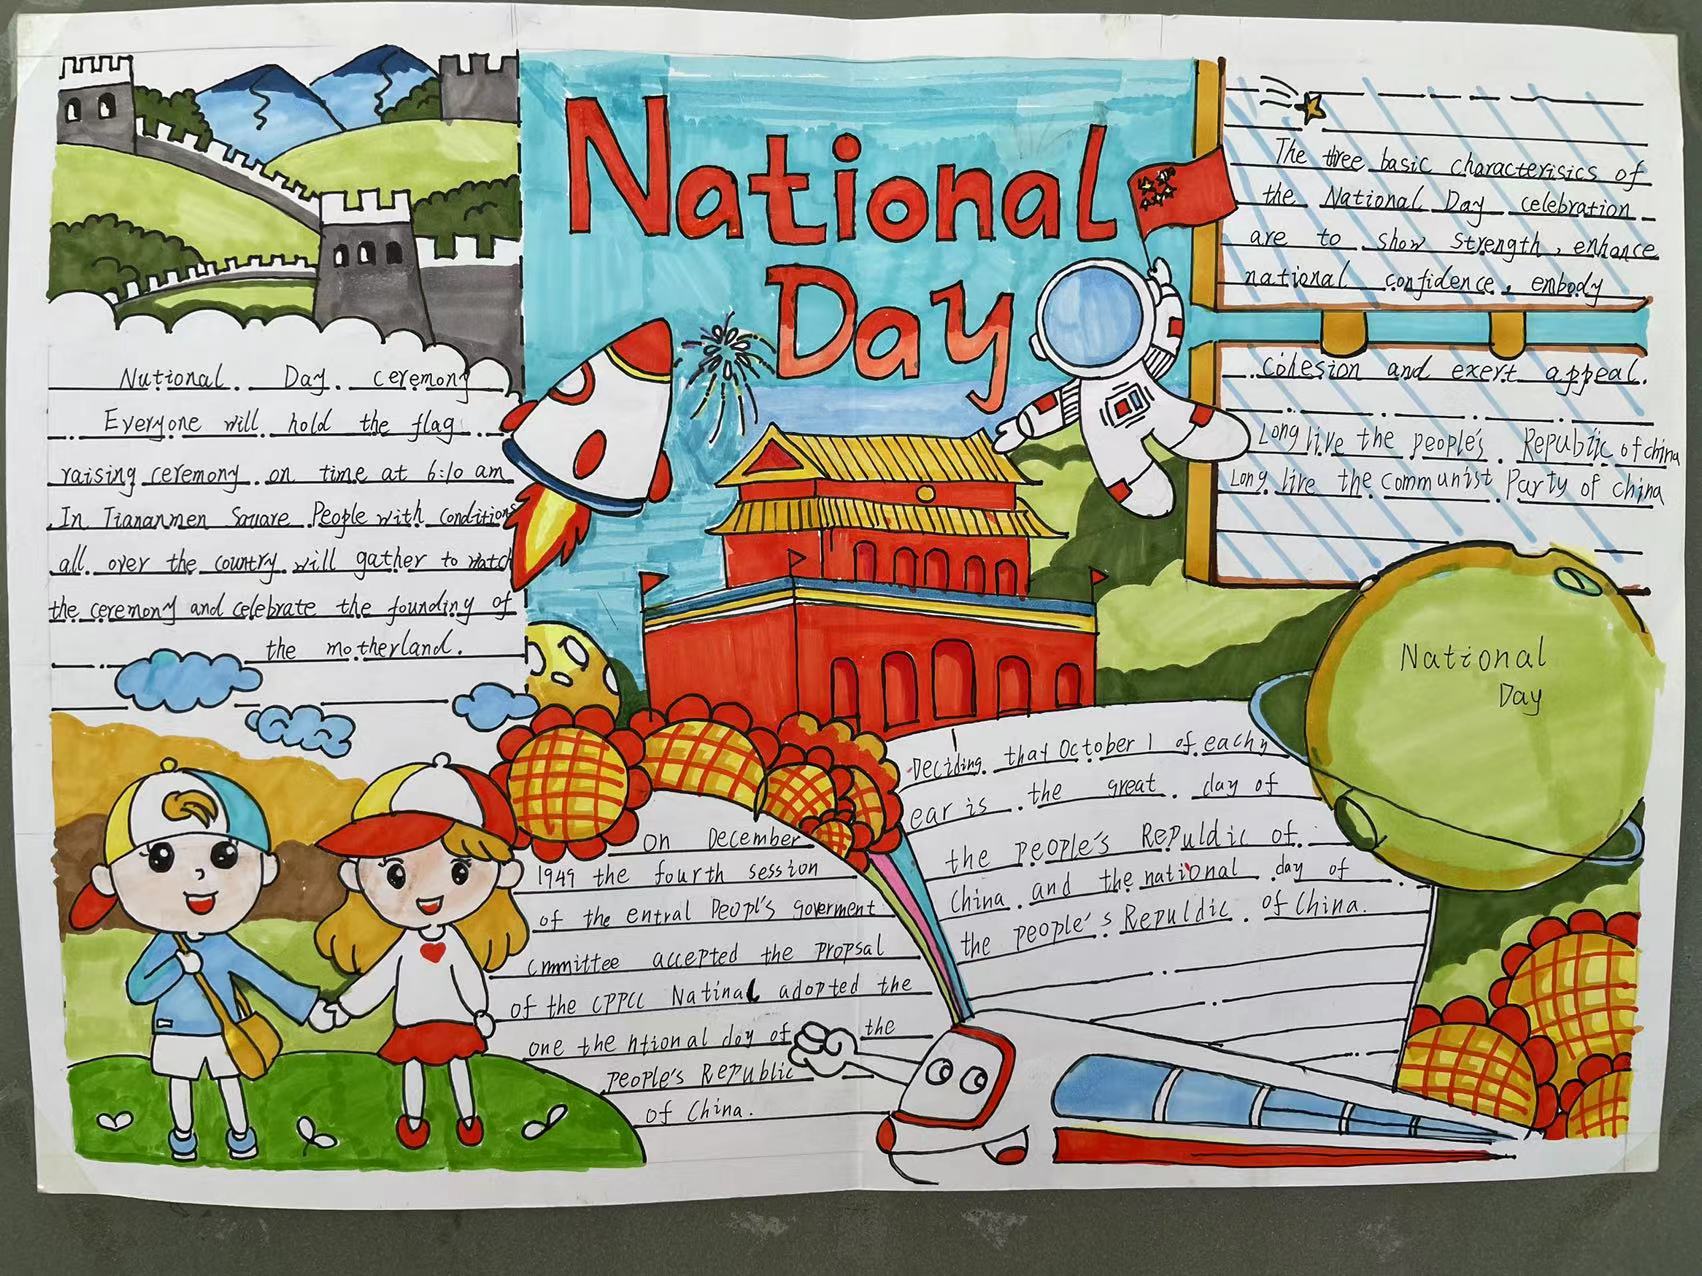 National
Day
Nutional Day ceremony
Everyone will hold the flag
raising ceremony on time at 6:10 am
In Tiananmen Square People with conditions
all over the country will gather to watch
the ceremony and celebrate the founding of
the motherland.
The three basic characterisics of
the National Day celebration
are to show strength, enhance
national confidence, embody
cohesion and exert appeal.
Long live the people's Republic of china
Long live the Communist Party of china
National
Day
On December
1949 the fourth session
of the entral Peopl's goverment
cmmittee accepted the propsal
of the CPPCC Natinal adopted the
one the ntional day of the
people's Republic
of China.
Deciding that October 1 of each y
ear is the great day of
the people's Repuldic of
China and the national day of
the people's Repuldic of China.